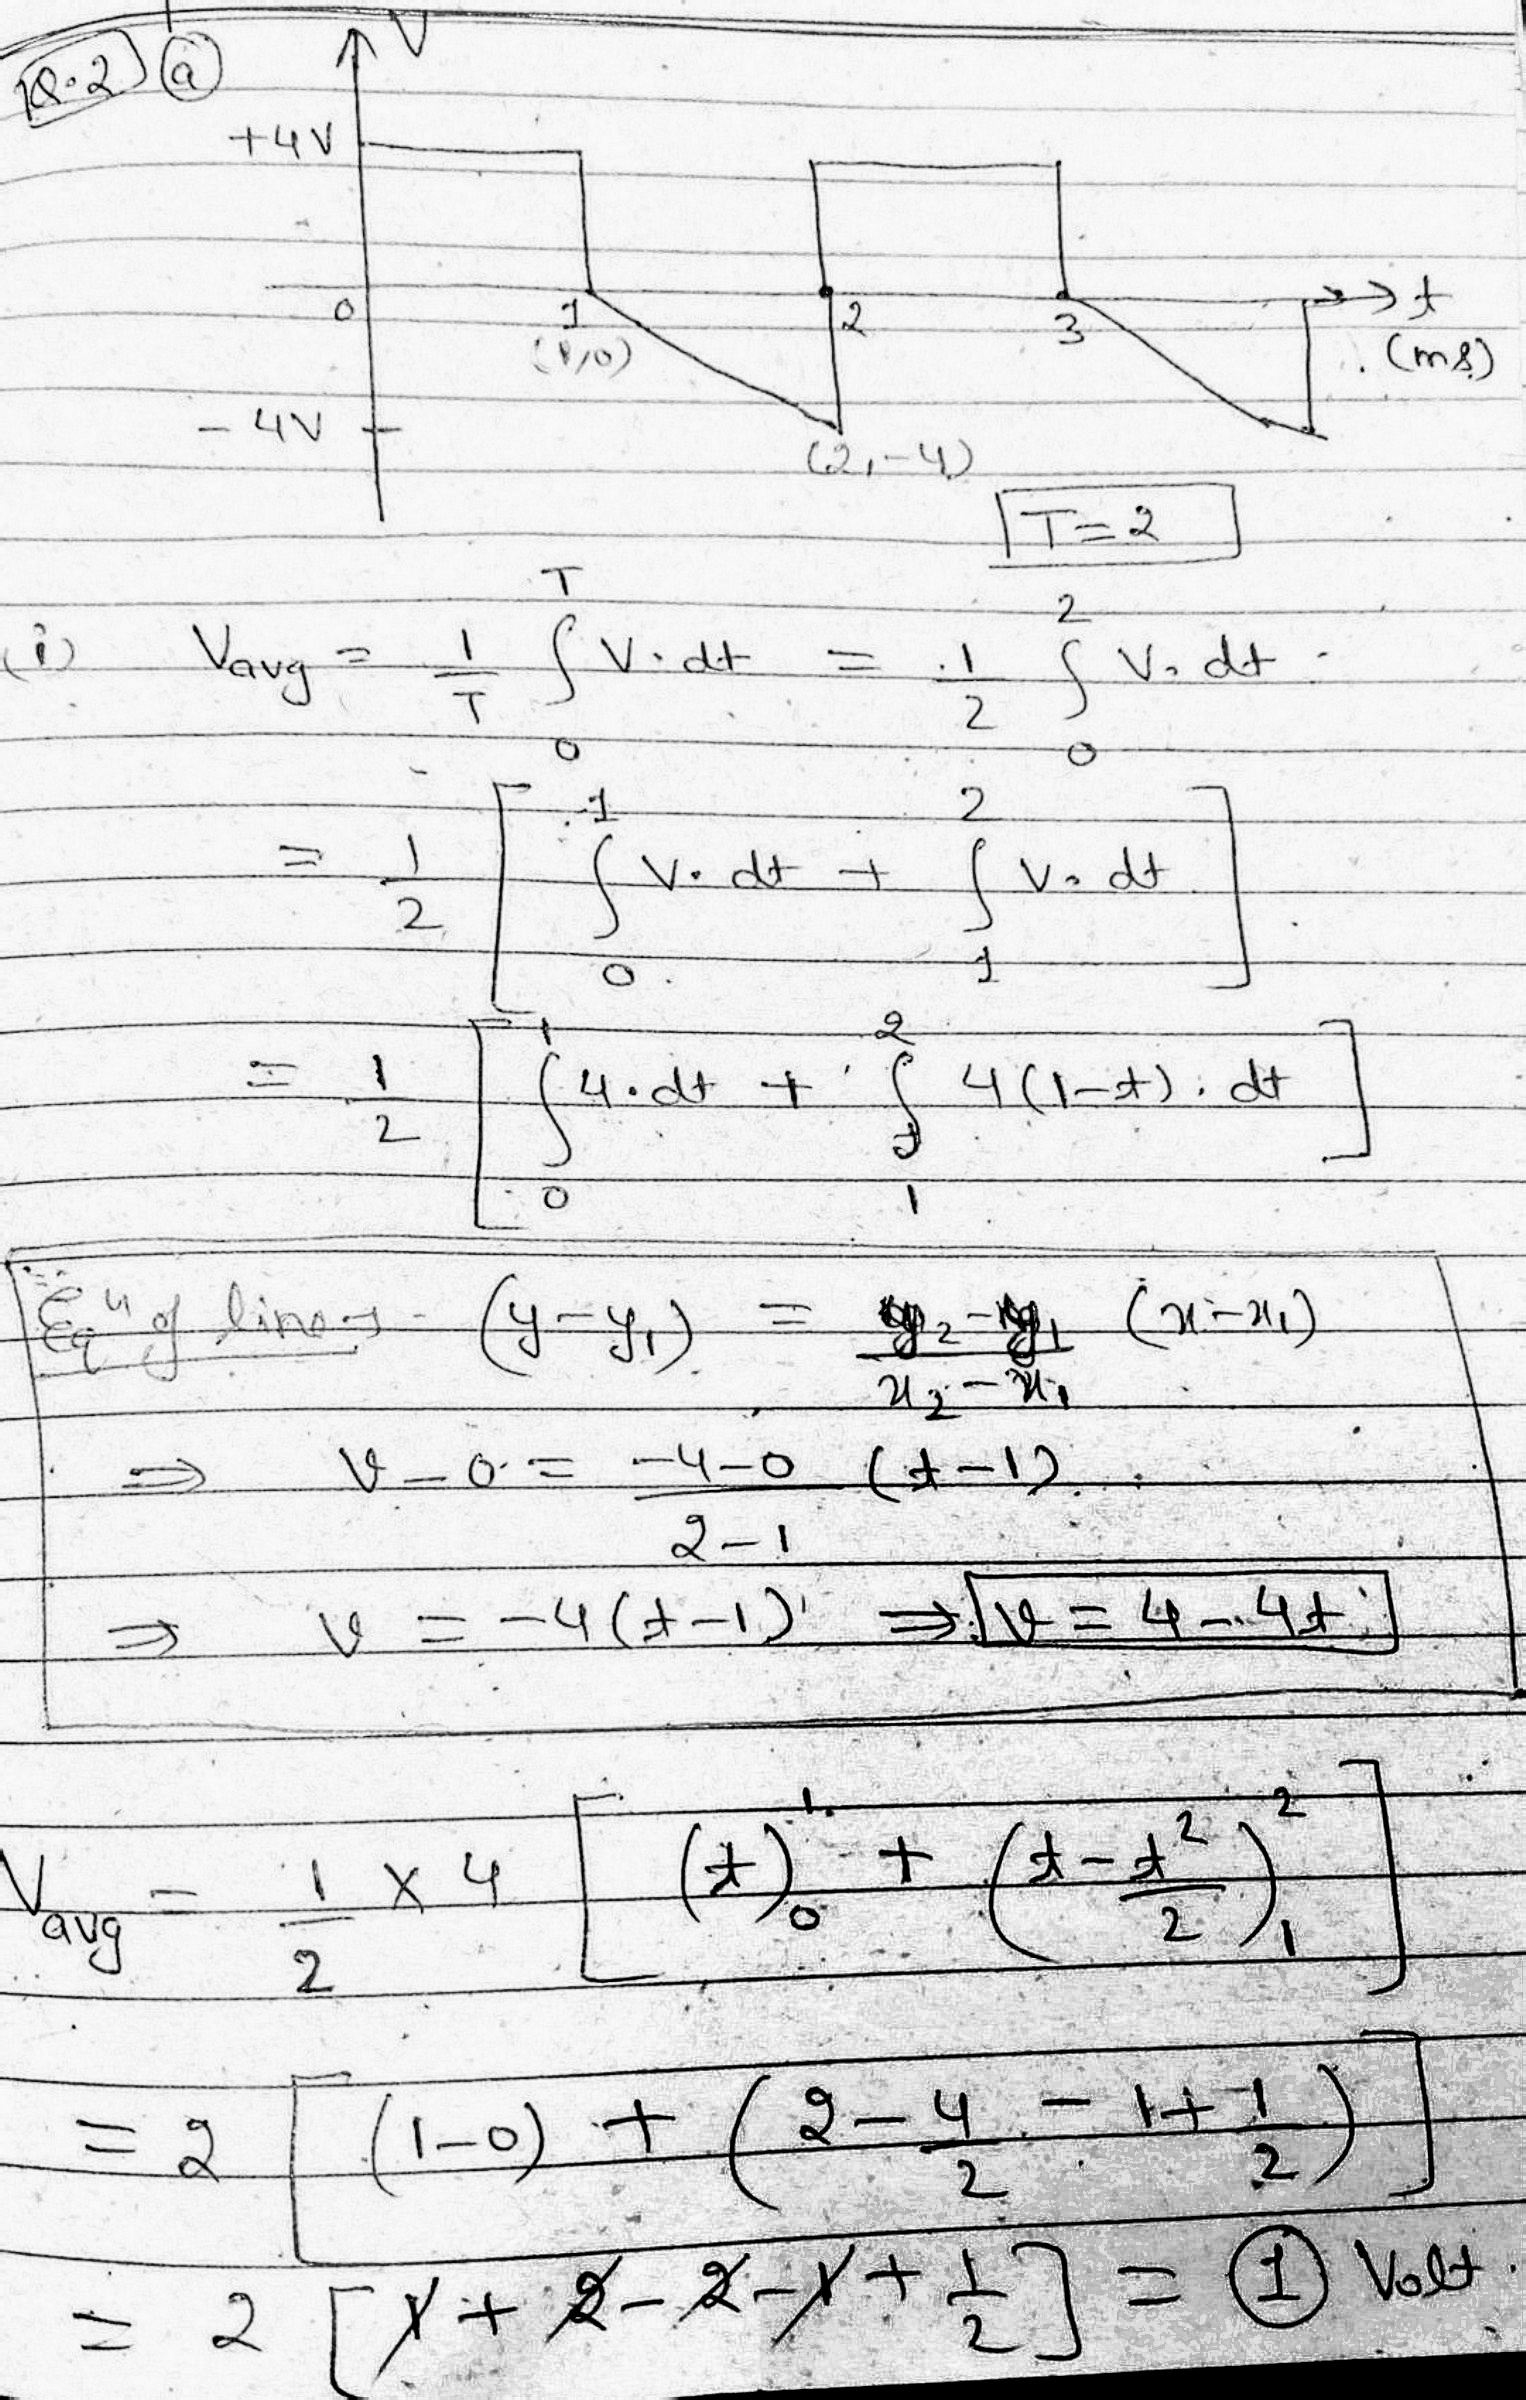 Q.2 (a)
V
+4V
0 1 2 3 t
(1,0) (ms)
-4V
(2,-4)
T=2
(i) Vavg = 1/T ∫₀ᵀ V.dt = 1/2 ∫₀² V.dt
= 1/2 [ ∫₀¹ V.dt + ∫₁² V.dt ]
= 1/2 [ ∫₀¹ 4.dt + ∫₁² 4(1-t).dt ]
Eqⁿ of line → (y-y₁) = (y₂-y₁)/(x₂-x₁) (x-x₁)
⇒ v-0 = (-4-0)/(2-1) (t-1)
⇒ v = -4(t-1) ⇒ v = 4-4t
Vavg = 1/2 × 4 [ (t)₀¹ + (t - t²/2)₁² ]
= 2 [ (1-0) + (2 - 4/2 - 1 + 1/2) ]
= 2 [ 1 + 2 - 2 - 1 + 1/2 ] = 1 Volt.